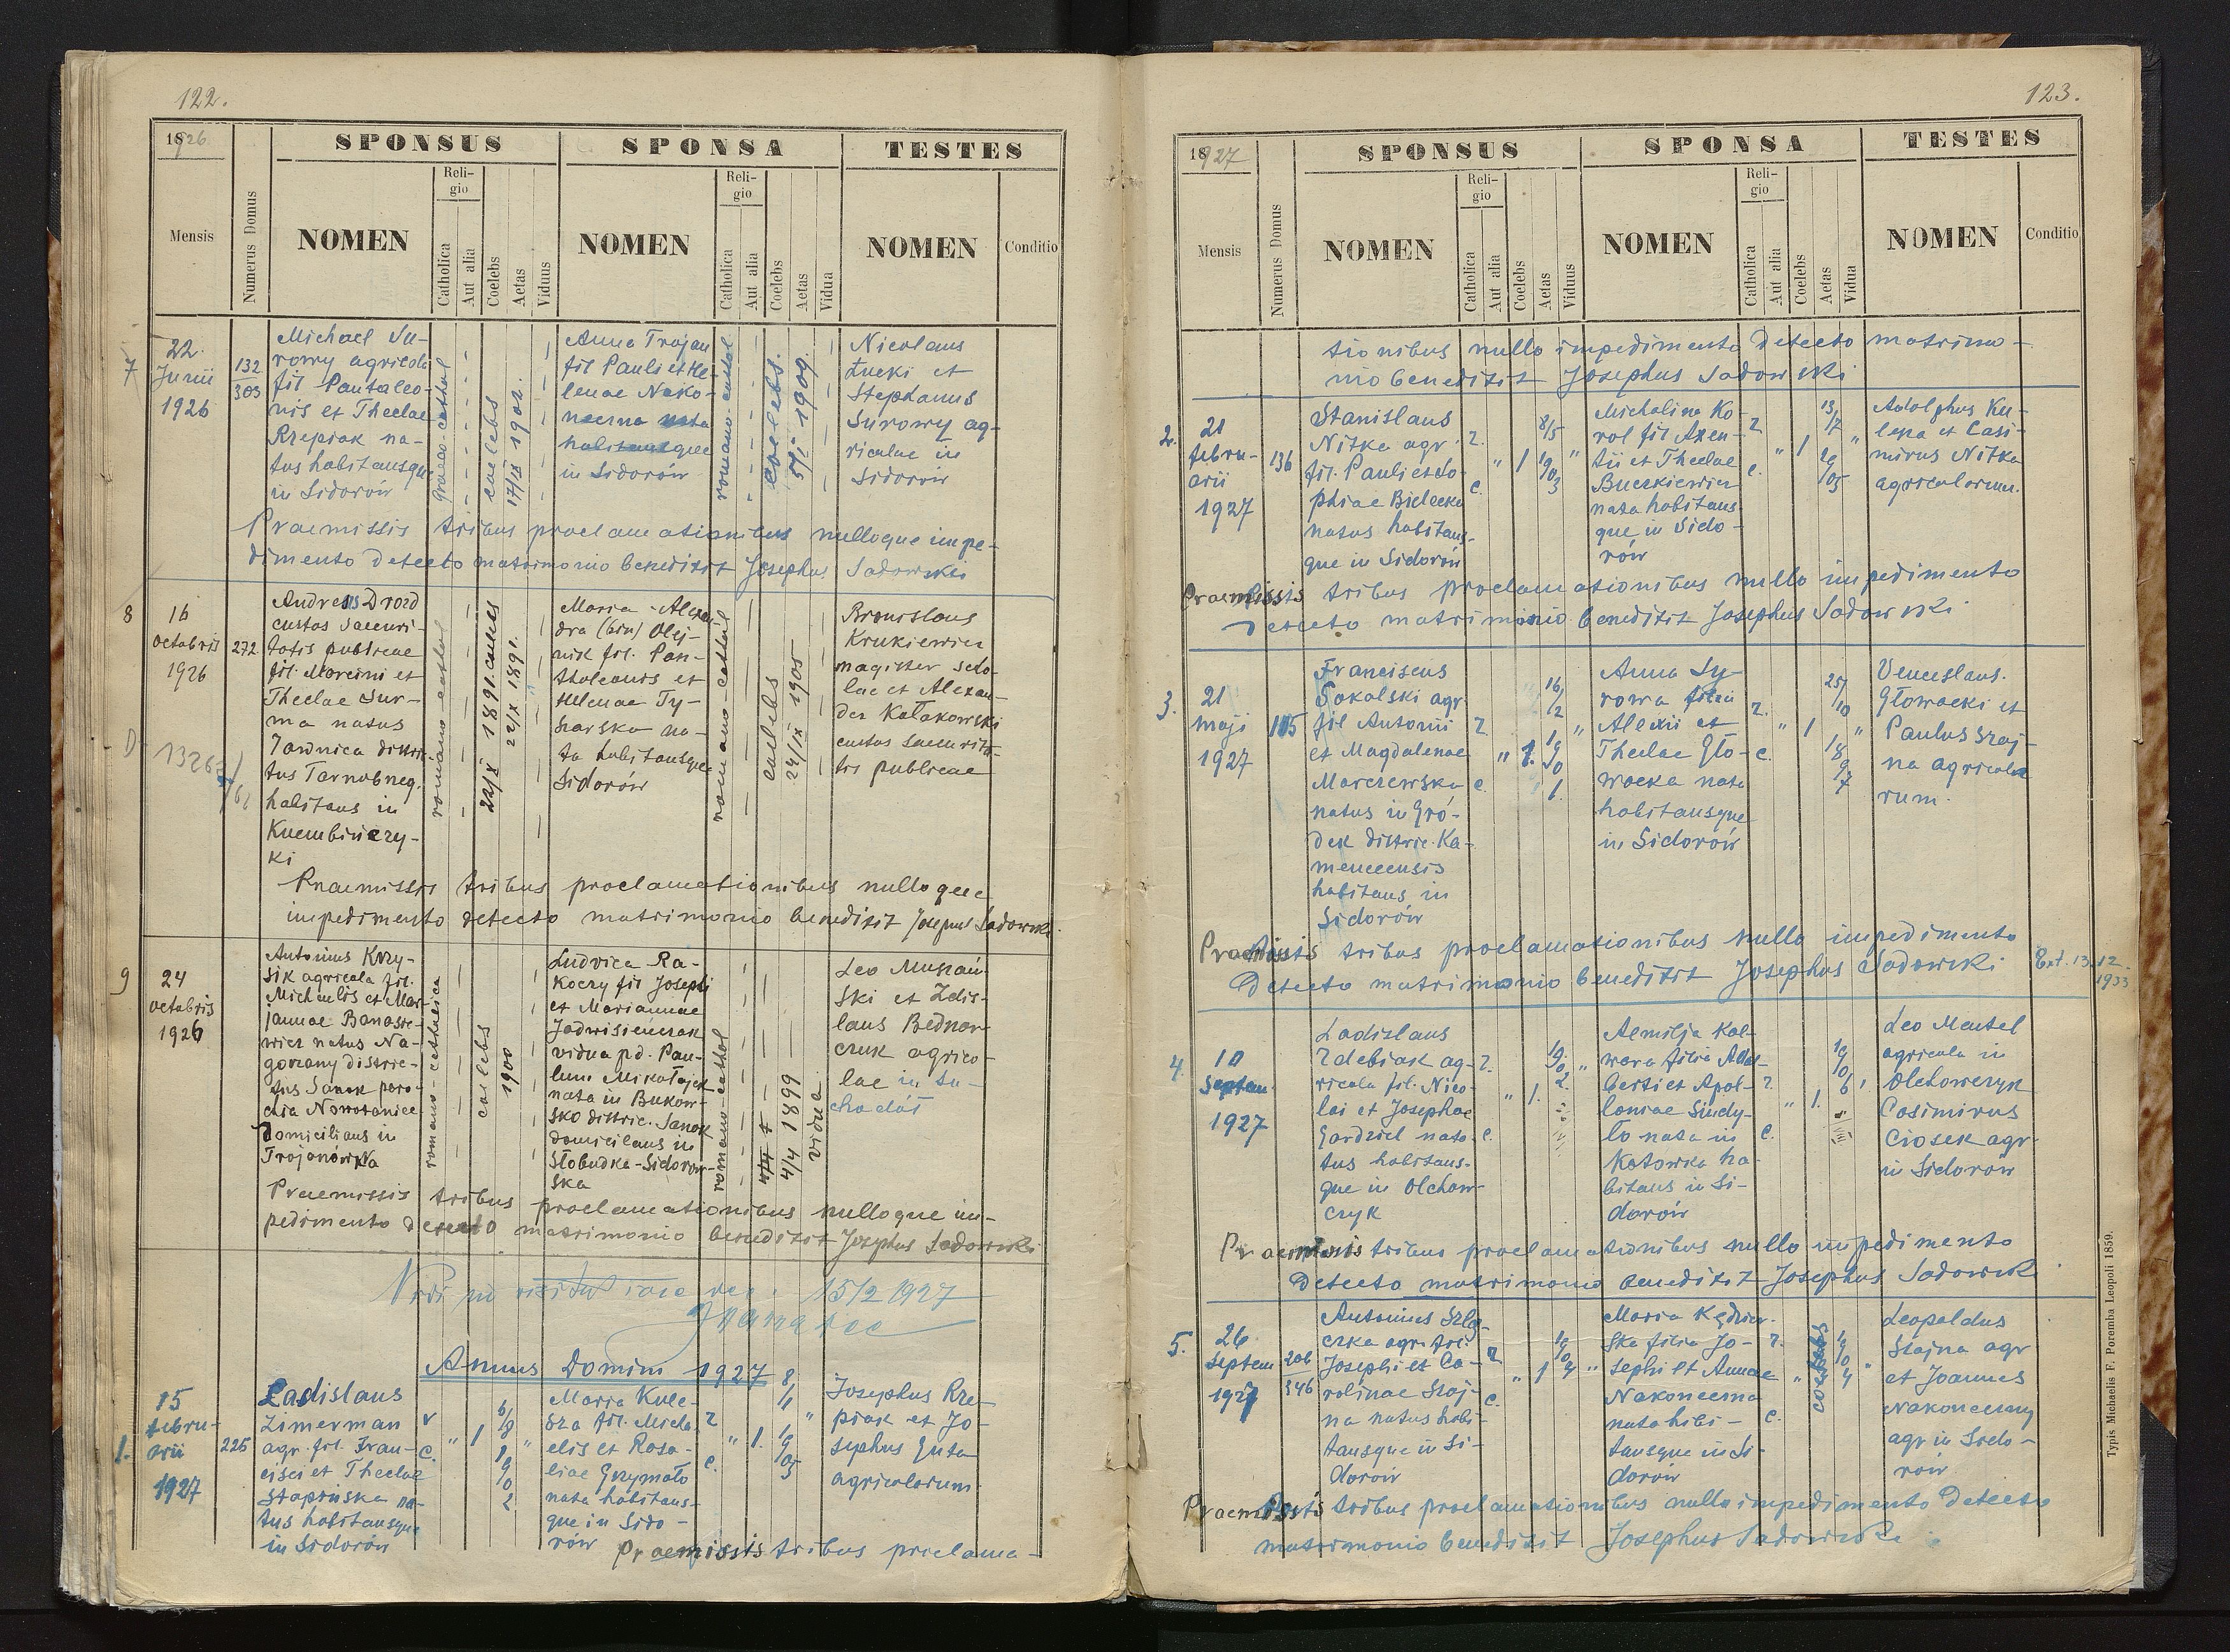 122.
1926
SPONSUS
SPONSA
TESTES
Mensis
Numerus Domus
NOMEN
Religio
Catholica
Aut alia
Coelebs
Aetas
Viduus
NOMEN
Religio
Catholica
Aut alia
Coelebs
Aetas
Vidua
NOMEN
Conditio
7
22.
Junii
1926
132
303
Michael Su-
rowy agricola
fil Pantaleo-
nis et Theclae
Rzepiak na-
tus habitansque
in Sidorów
graeco-cathol
coelebs
17/IX 1902.
Anna Trojan
fil Pauli et He-
lenae Nako-
neczna nata
habitansque
in Sidorów
romano-cathol
coelebs.
5/I 1909
Nicolaus
Łucki et
Stephanus
Surowy ag-
ricolae in
Sidorów
Praemissis tribus proclamationibus nulloque impe-
dimento detecto matrimonio benedixit Josephus Sadowski
8
16
octobris
1926
272
Andreas Drozd
custos securi-
tatis publicae
fil. Marcini et
Theclae Sur-
ma natus
Jadnica distric-
tus Tarnobrzeg.
habitans in
Kuembińczy-
ki
romano-cathol
22/X 1891
22/X 1891.
Maria-Alexan-
dra (bin) Olej-
nik fil. Pan-
thaleonis et
Helenae Ty-
harska na-
ta habitansque
Sidorów
romano-cathol
coelebs
24/IX 1905
Bronislaus
Krukiewicz
magister scho-
lae et Alexan-
der Kołakowski
custos securita-
tis publicae
Praemissis tribus proclamationibus nulloque
impedimento detecto matrimonio benedixit Josephus Sadowski.
9
24
octobris
1926
Antonius Krzy-
sik agricola fil.
Michaelis et Mar-
iannae Banasie-
wicz natus Na-
gorzany distric-
tus Sanok paro-
chia Nowotaniec
domicilians in
Trojanówka
romano-catholica
coelebs
1900
Ludvica Ra-
koczy fil Josephi
et Mariannae
Jadwisieńczak
vidua pd. Pau-
lum Mikołajek
nata in Bukow-
sko distric. Sanok
domicilans in
Słobudka-Sidorow-
ska
romano-cathol
4/4 1899
vidua
Leo Muszań-
ski et Zdis-
laus Bednar-
czuk agrico-
lae in Su-
chodół
Praemissis tribus proclamationibus nulloque im-
pedimento detecto matrimonio benedixit Josephus Sadowski
15/2 1927
Annus Domini 1927
1.
15
febru-
arii
1927
225
Ladislaus
Zimerman
agr. fil. Fran-
cisci et Theclae
Stopińska na-
tus habitansque
in Sidorów
r.
c.
" 1 "
6/8
1902
Maria Kule-
sza fil. Micha-
elis et Rosa-
liae Grzymało
nata habitans-
que in Sido-
rów
r.
c.
" 1. "
8/11
1905
Josephus Rze-
piak et Jo-
sephus Guta
agricolarum.
Praemissis tribus proclama-
123.
1927
SPONSUS
SPONSA
TESTES
Mensis
Numerus Domus
NOMEN
Religio
Catholica
Aut alia
Coelebs
Aetas
Viduus
NOMEN
Religio
Catholica
Aut alia
Coelebs
Aetas
Vidua
NOMEN
Conditio
tionibus nullo impedimento detecto matrimo-
nio benedixit Josephus Sadowski
2.
21
febru-
arii
1927
136
Stanislaus
Nitka agr.
fil. Pauli et So-
phiae Bielecka
natus habitans-
que in Sidorów
r.
c.
" 1 "
8/5
1903
Michalina Ko-
rol fil Axen-
tii et Theclae
Buczkiewicz
nata habitans-
que in Sido-
rów
r.
c.
" 1 "
13/7
1905
Adolphus Ku-
lepa et Casi-
mirus Nitka
agricolarum.
Praemissis tribus proclamationibus nullo impedimento
detecto matrimonio benedixit Josephus Sadowski
3.
21
maji
1927
105
Franciscus
Sokalski agr
fil Antonii
et Magdalenae
Marczewska
natus in Gró-
dek distric. Ka-
menecensis
habitans in
Sidorów
r.
c.
" 1. "
16/12
1901.
Anna Sy-
rowa filia
Alexii et
Theclae Gło-
wacka nata
habitansque
in Sidorów
r.
c.
" 1 "
25/10
1897
Venceslaus.
Głowacki et
Paulus Szaj-
na agricola-
rum.
Praemissis tribus proclamationibus nullo impedimento
detecto matrimonio benedixit Josephus Sadowski
Ext. 13.12.
1933
4.
10
Septem.
1927
Ladislaus
Zdebiak ag-
ricola fil. Nico-
lai et Josephae
Gardziel nata-
tus habitans-
que in Olchow-
czyk
r.
c.
" 1. "
1902.
Aemilja Kal-
wara filia Adal-
berti et Apol-
loniae Sindy-
ło nata in
Kotowka ha-
bitans in Si-
dorów
r.
c.
" 1.
1906
Leo Mentel
agricola in
Olchowczyk
Casimirus
Ciosek agr.
in Sidorów
Praemissis tribus proclamationibus nullo impedimento
detecto matrimonio benedixit Josephus Sadowski.
5.
26
Septem
1927
206
346
Antonius Szlę-
czka agr. fil.
Josephi et Ca-
rolinae Szaj-
na natus habi-
tansque in Si-
dorów
r.
c.
" 1 "
1904
Maria Kędzier-
ska filia Jo-
sephi et Annae
Nakoneczna
nata habi-
tansque in Si-
dorów
r.
c.
coelebs
1904
Leopoldus
Szajna agr
et Joannes
Nakoneczny
agr in Sido-
rów
Praemissis tribus proclamationibus nullo impedimento detecto
matrimonio benedixit Josephus Sadowski
Typis Michaelis F. Poremba Leopoli 1859.